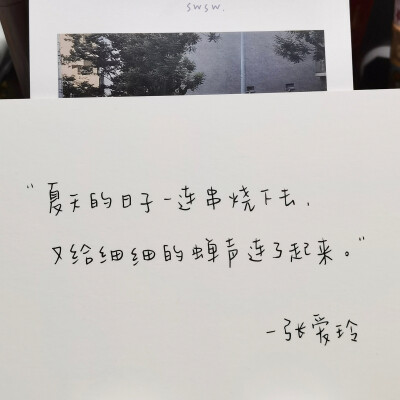 swsw.
“夏天的日子一连串烧下去，
又给细细的蝉声连了起来。”
一张爱玲